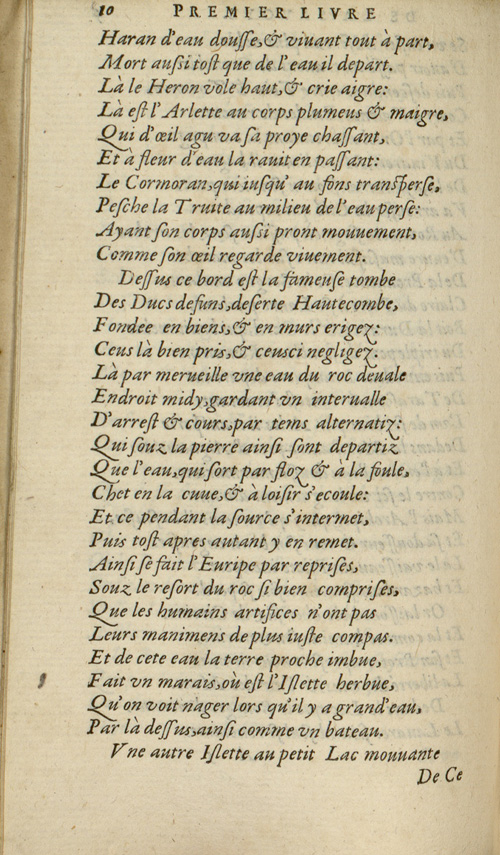 10 PREMIER LIVRE
Haran d'eau dousse,& viuant tout à part,
Mort außi tost que de l'eau il depart.
Là le Heron vole haut,& crie aigre:
Là est l'Arlette au corps plumeus & maigre,
Qui d'œil agu va sa proye chassant,
Et à fleur d'eau la rauit en passant:
Le Cormoran,qui iusqu' au fons transperse,
Pesche la Truite au milieu de l'eau perse:
Ayant son corps außi pront mouuement,
Comme son œil regarde viuement.
Dessus ce bord est la fameuse tombe
Des Ducs defuns,deserte Hautecombe,
Fondee en biens,& en murs erigez:
Ceus là bien pris,& ceusci negligez.
Là par merueille vne eau du roc deuale
Endroit midy,gardant vn interualle
D'arrest & cours,par tems alternatiz:
Qui souz la pierre ainsi sont departiz
Que l'eau,qui sort par floz & à la foule,
Chet en la cuue,& à loisir s'ecoule:
Et ce pendant la source s'intermet,
Puis tost apres autant y en remet.
Ainsi se fait l'Euripe par reprises,
Souz le resort du roc si bien comprises,
Que les humains artifices n'ont pas
Leurs manimens de plus iuste compas.
Et de cete eau la terre proche imbue,
Fait vn marais,où est l'Islette herbue,
Qu'on voit nager lors qu'il y a grand'eau,
Par là dessus,ainsi comme vn bateau.
Vne autre Islette au petit Lac mouuante
De Ce